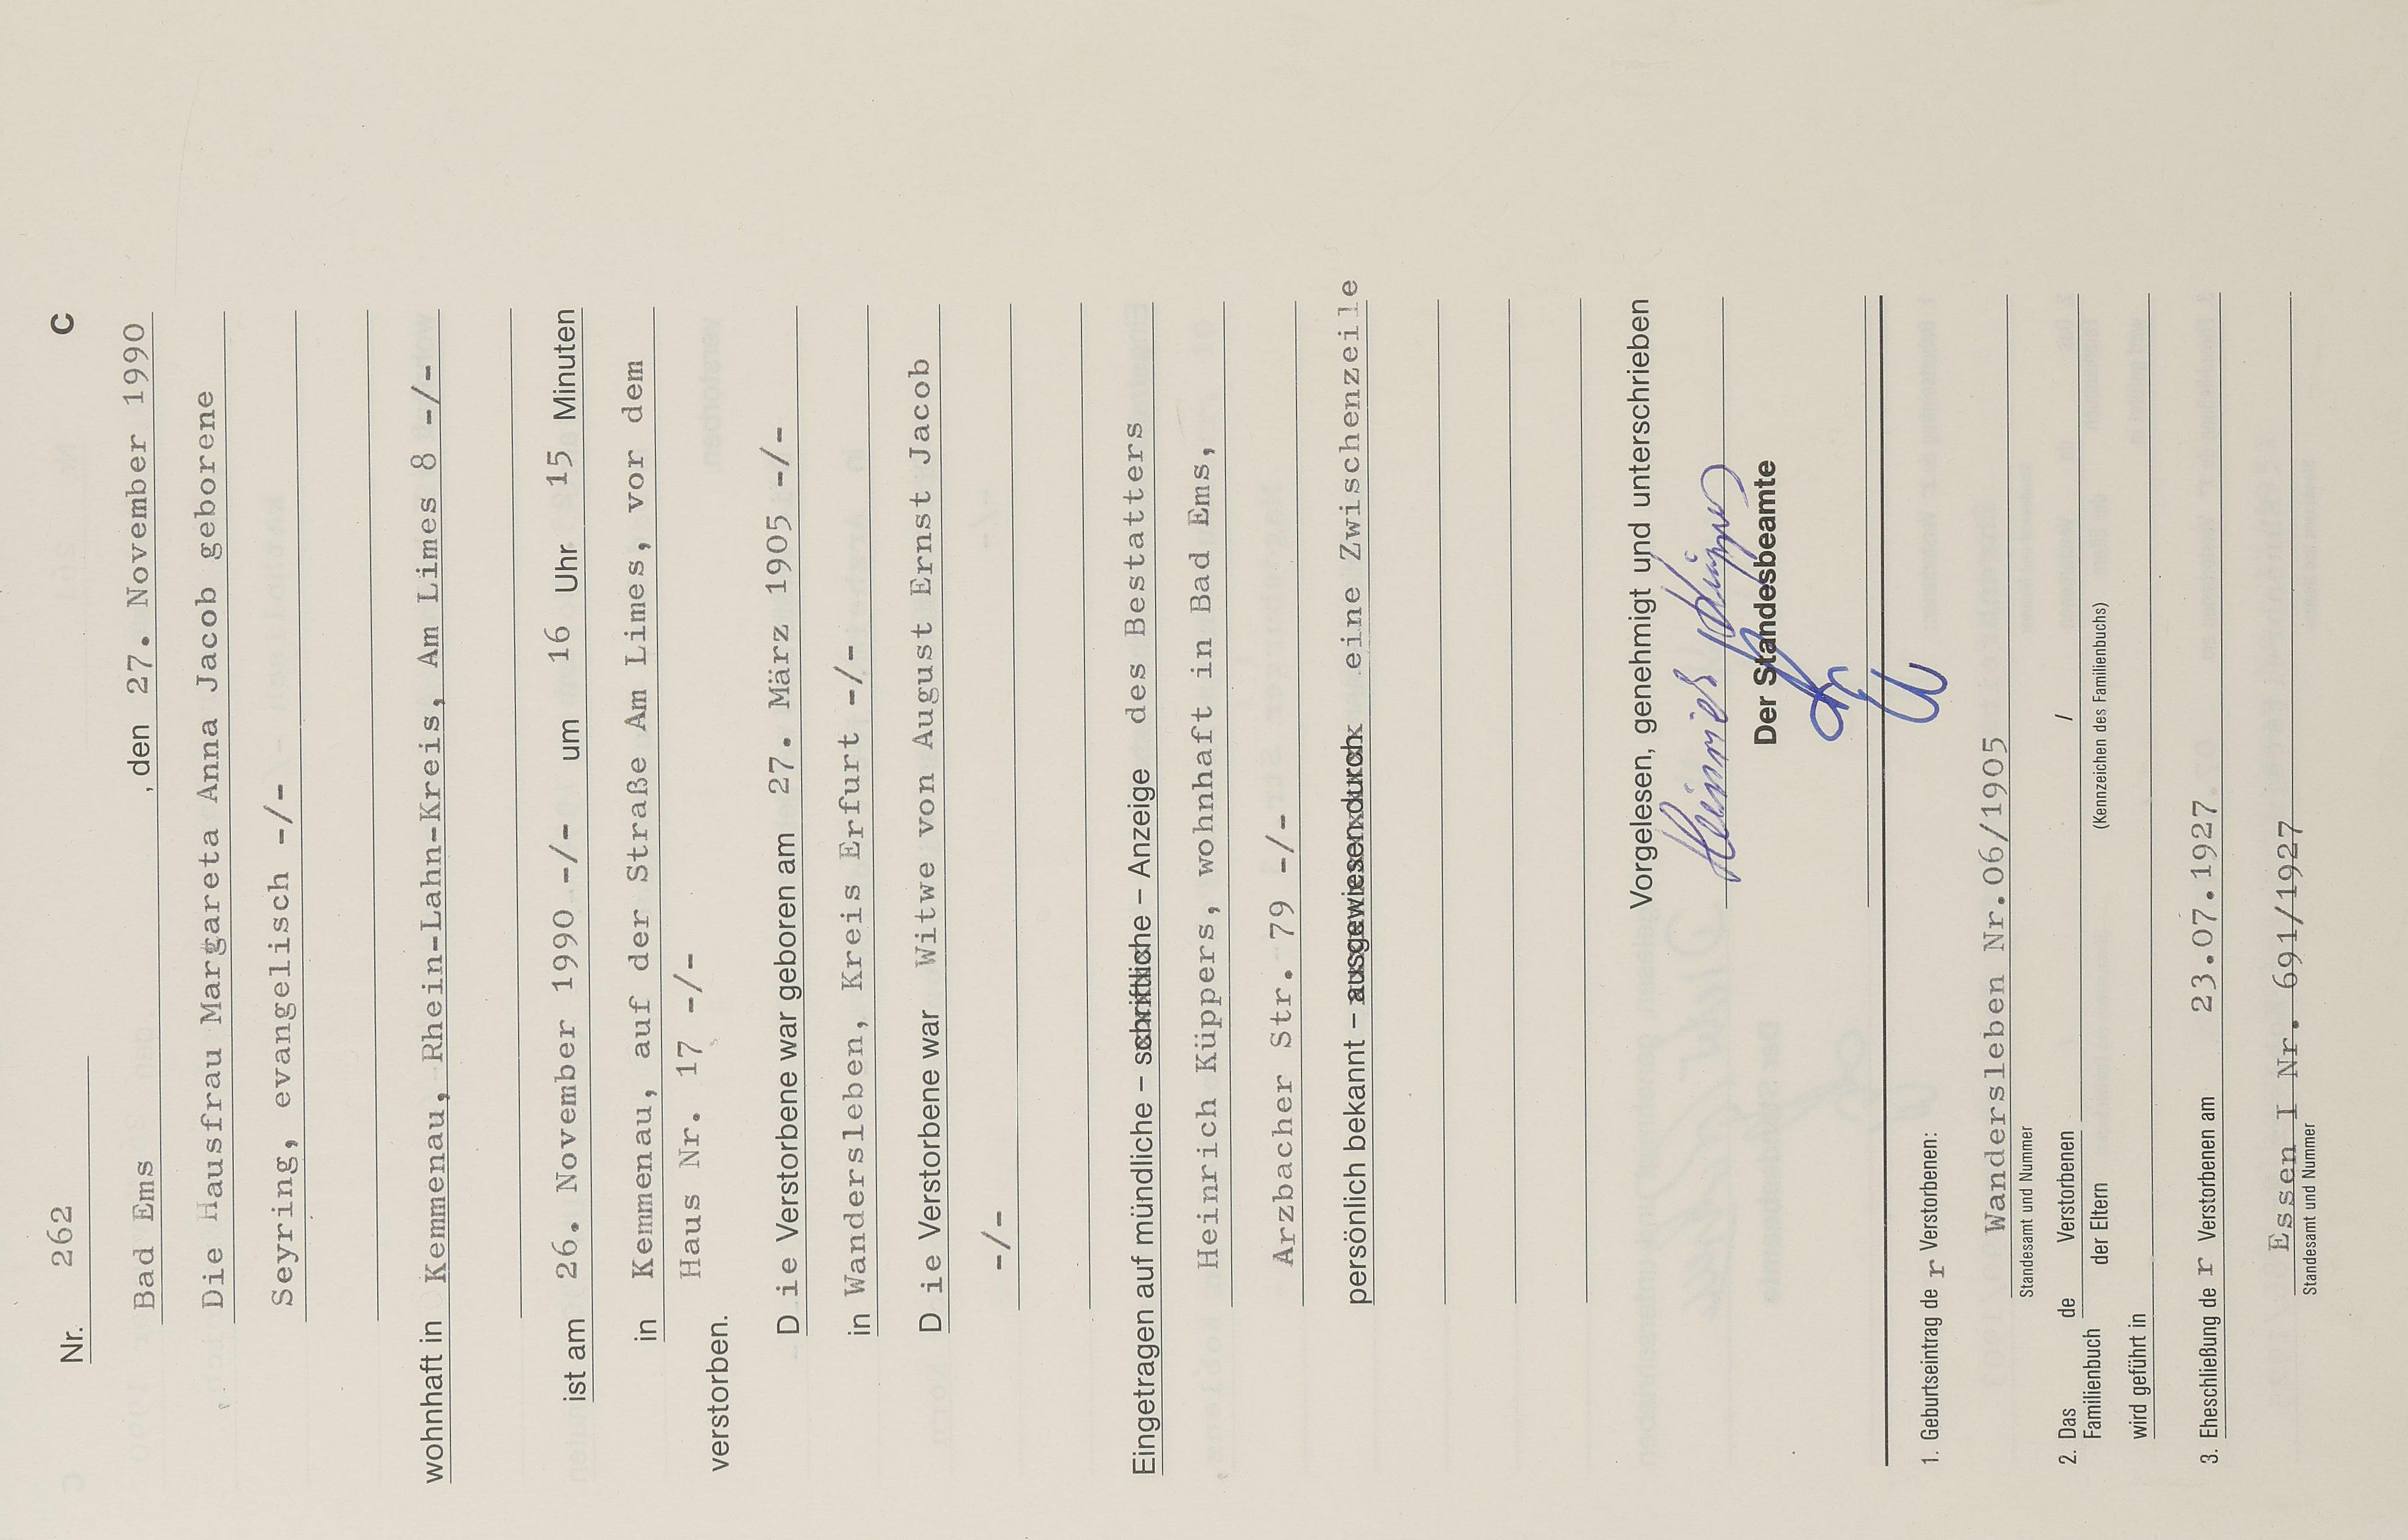 Nr. 262 C
Bad Ems , den 27. November 1990
Die Hausfrau Margareta Anna Jacob geborene
Seyring, evangelisch -/-
wohnhaft in Kemmenau, Rhein-Lahn-Kreis, Am Limes 8 -/-
ist am 26. November 1990 -/- um 16 Uhr 15 Minuten
in Kemmenau, auf der Straße Am Limes, vor dem
Haus Nr. 17 -/-
verstorben.
D ie Verstorbene war geboren am 27. März 1905 -/-
in Wandersleben, Kreis Erfurt -/-
D ie Verstorbene war Witwe von August Ernst Jacob
-/-
Eingetragen auf mündliche – schriftliche – Anzeige des Bestatters
Heinrich Küppers, wohnhaft in Bad Ems,
Arzbacher Str. 79 -/-
persönlich bekannt – ausgewiesen durch eine Zwischenzeile
Vorgelesen, genehmigt und unterschrieben
Heinrich Küppers
Der Standesbeamte
1. Geburtseintrag de r Verstorbenen:
Wandersleben Nr.06/1905
Standesamt und Nummer
2. Das de Verstorbenen /
Familienbuch der Eltern (Kennzeichen des Familienbuchs)
wird geführt in
3. Eheschließung de r Verstorbenen am 23.07.1927
Essen I Nr. 691/1927
Standesamt und Nummer